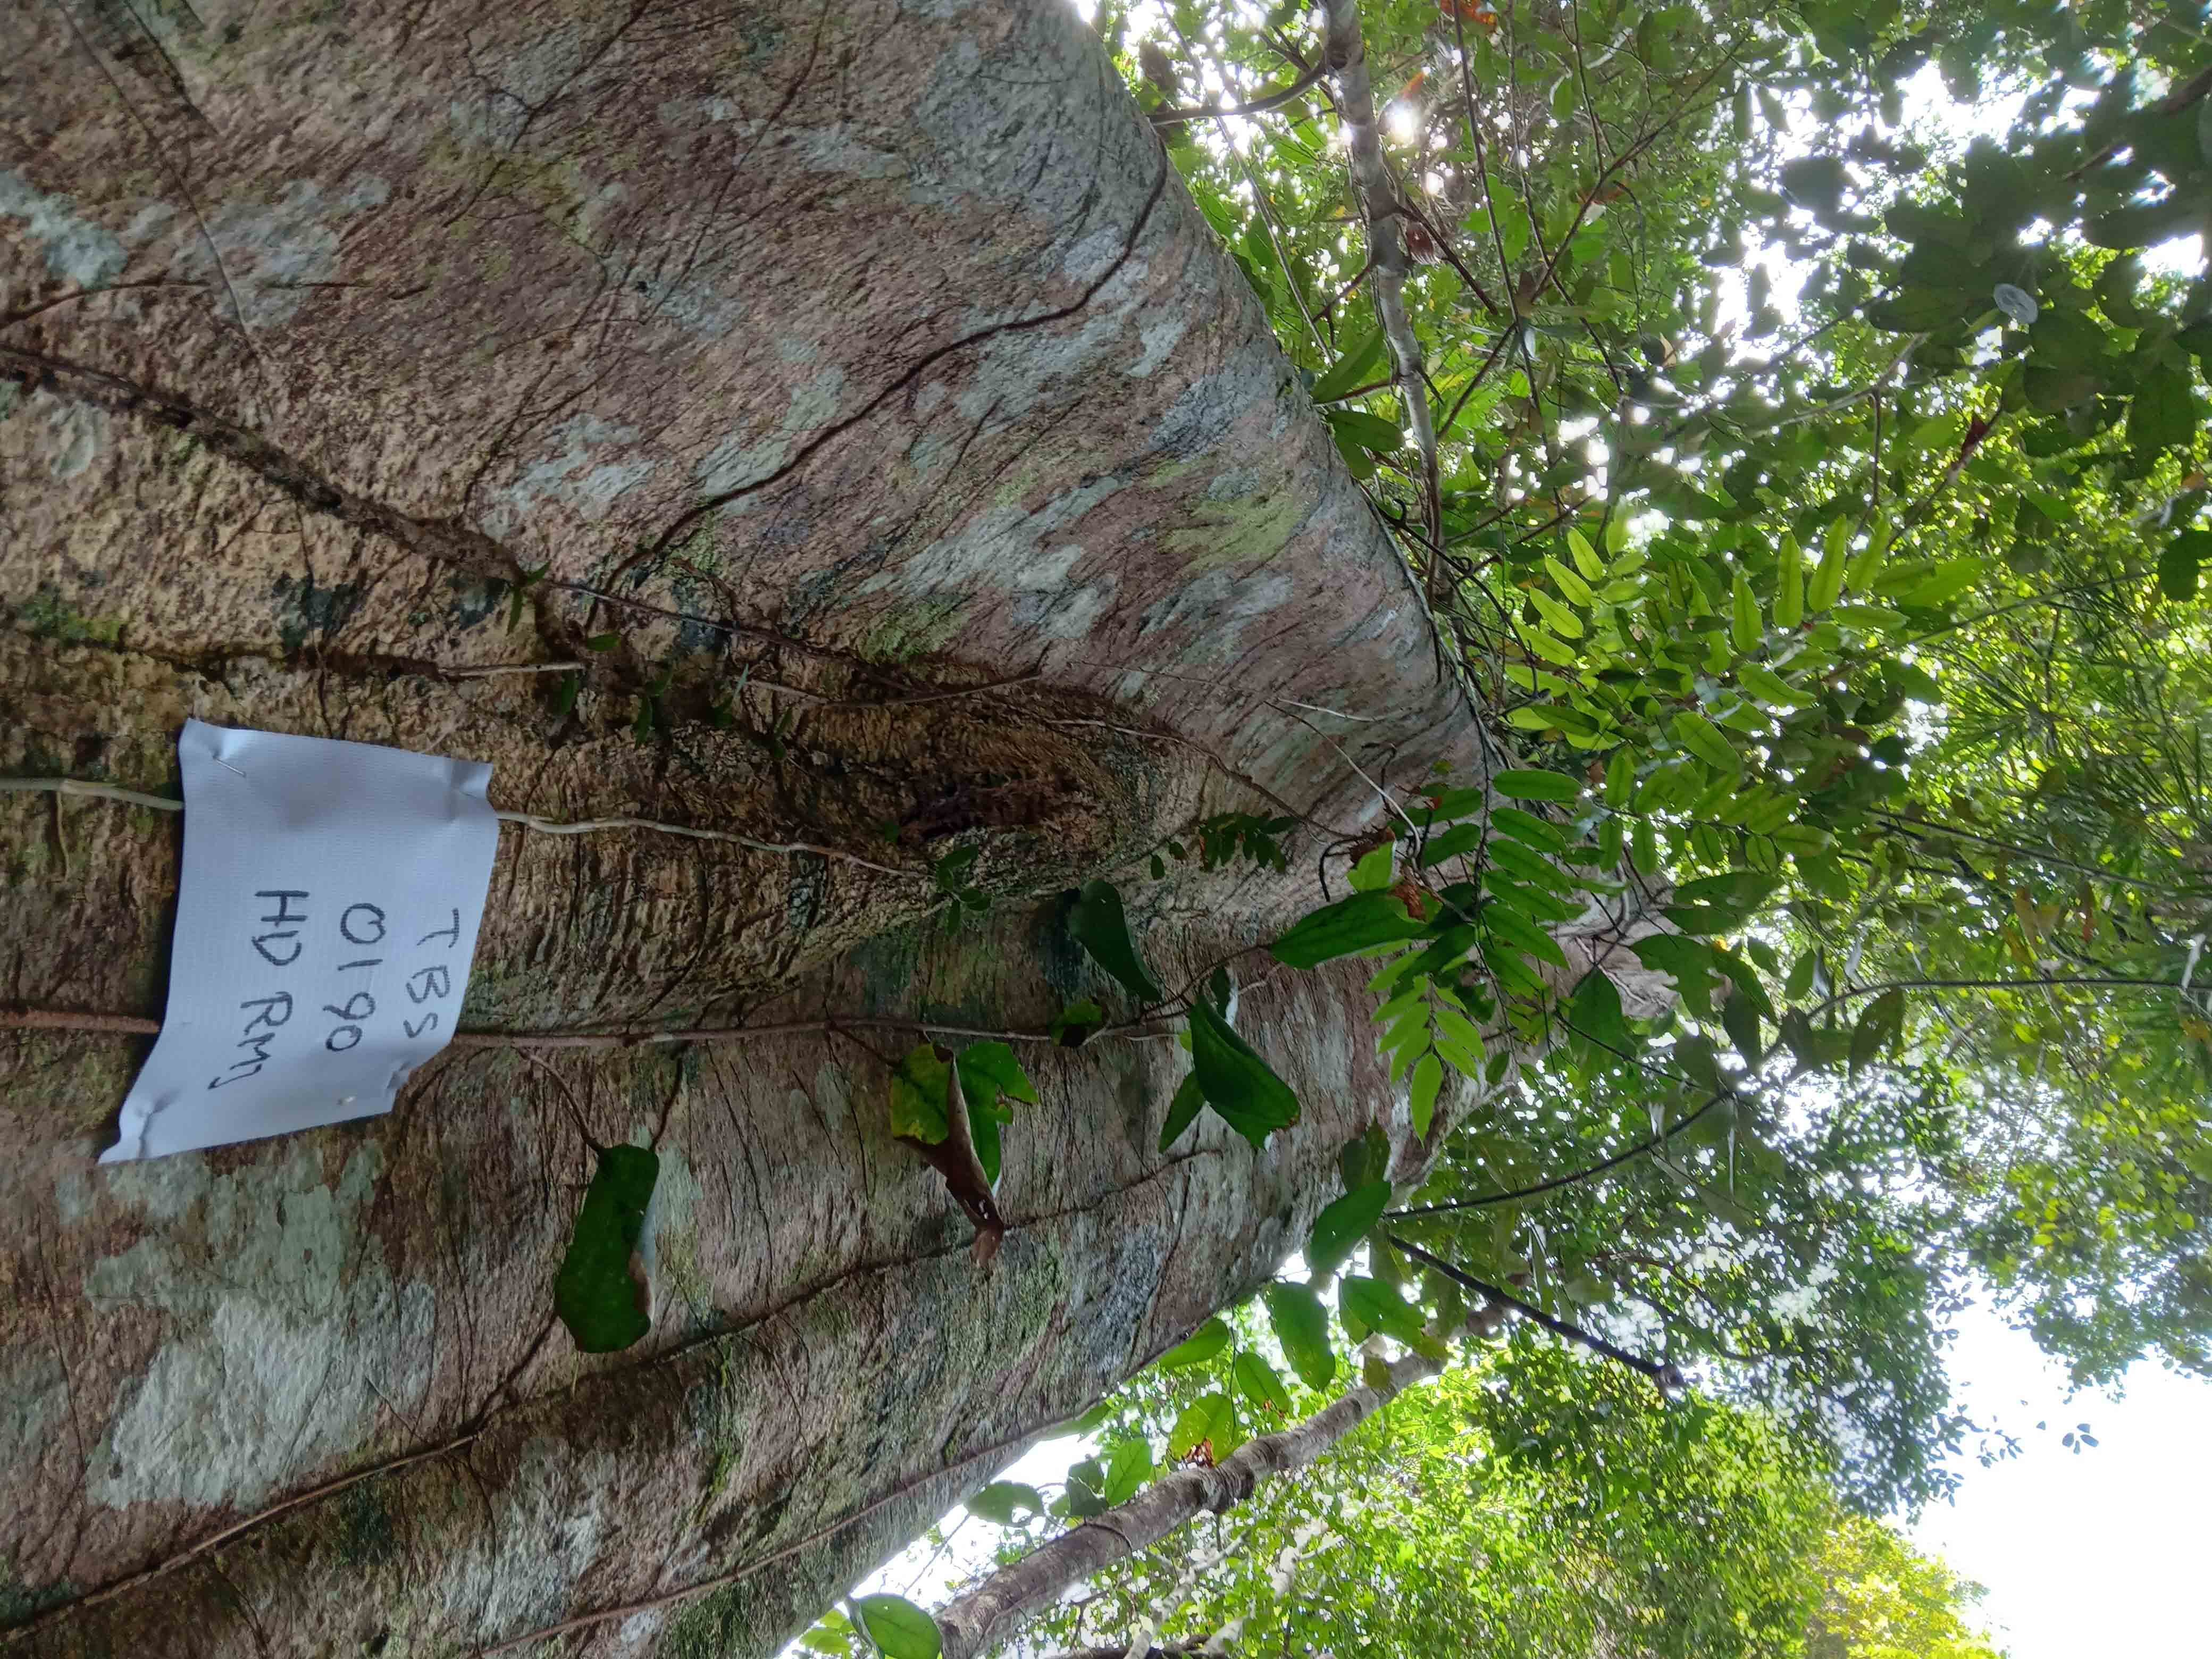 TBS
0190
HD RM7